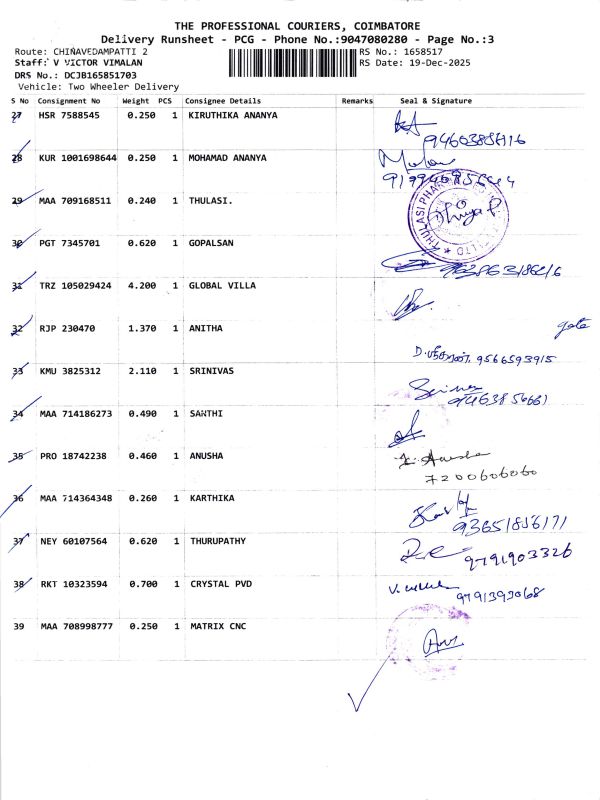 THE PROFESSIONAL COURIERS, COIMBATORE
Delivery Runsheet - PCG - Phone No.:9047080280 - Page No.:3
Route: CHINAVEDAMPATTI 2 RS No.: 1658517
Staff: V VICTOR VIMALAN RS Date: 19-Dec-2025
DRS No.: DCJB165851703
Vehicle: Two Wheeler Delivery
S No Consignment No Weight PCS Consignee Details Remarks Seal & Signature
27 HSR 7588545 0.250 1 KIRUTHIKA ANANYA
28 KUR 1001698644 0.250 1 MOHAMAD ANANYA
29 MAA 709168511 0.240 1 THULASI.
30 PGT 7345701 0.620 1 GOPALSAN
31 TRZ 105029424 4.200 1 GLOBAL VILLA
32 RJP 230470 1.370 1 ANITHA
gate
9566593915
33 KMU 3825312 2.110 1 SRINIVAS
34 MAA 714186273 0.490 1 SANTHI
35 PRO 18742238 0.460 1 ANUSHA
Anusha
7200606060
36 MAA 714364348 0.260 1 KARTHIKA
37 NEY 60107564 0.620 1 THURUPATHY
9791903326
38 RKT 10323594 0.700 1 CRYSTAL PVD
9791393068
39 MAA 708998777 0.250 1 MATRIX CNC